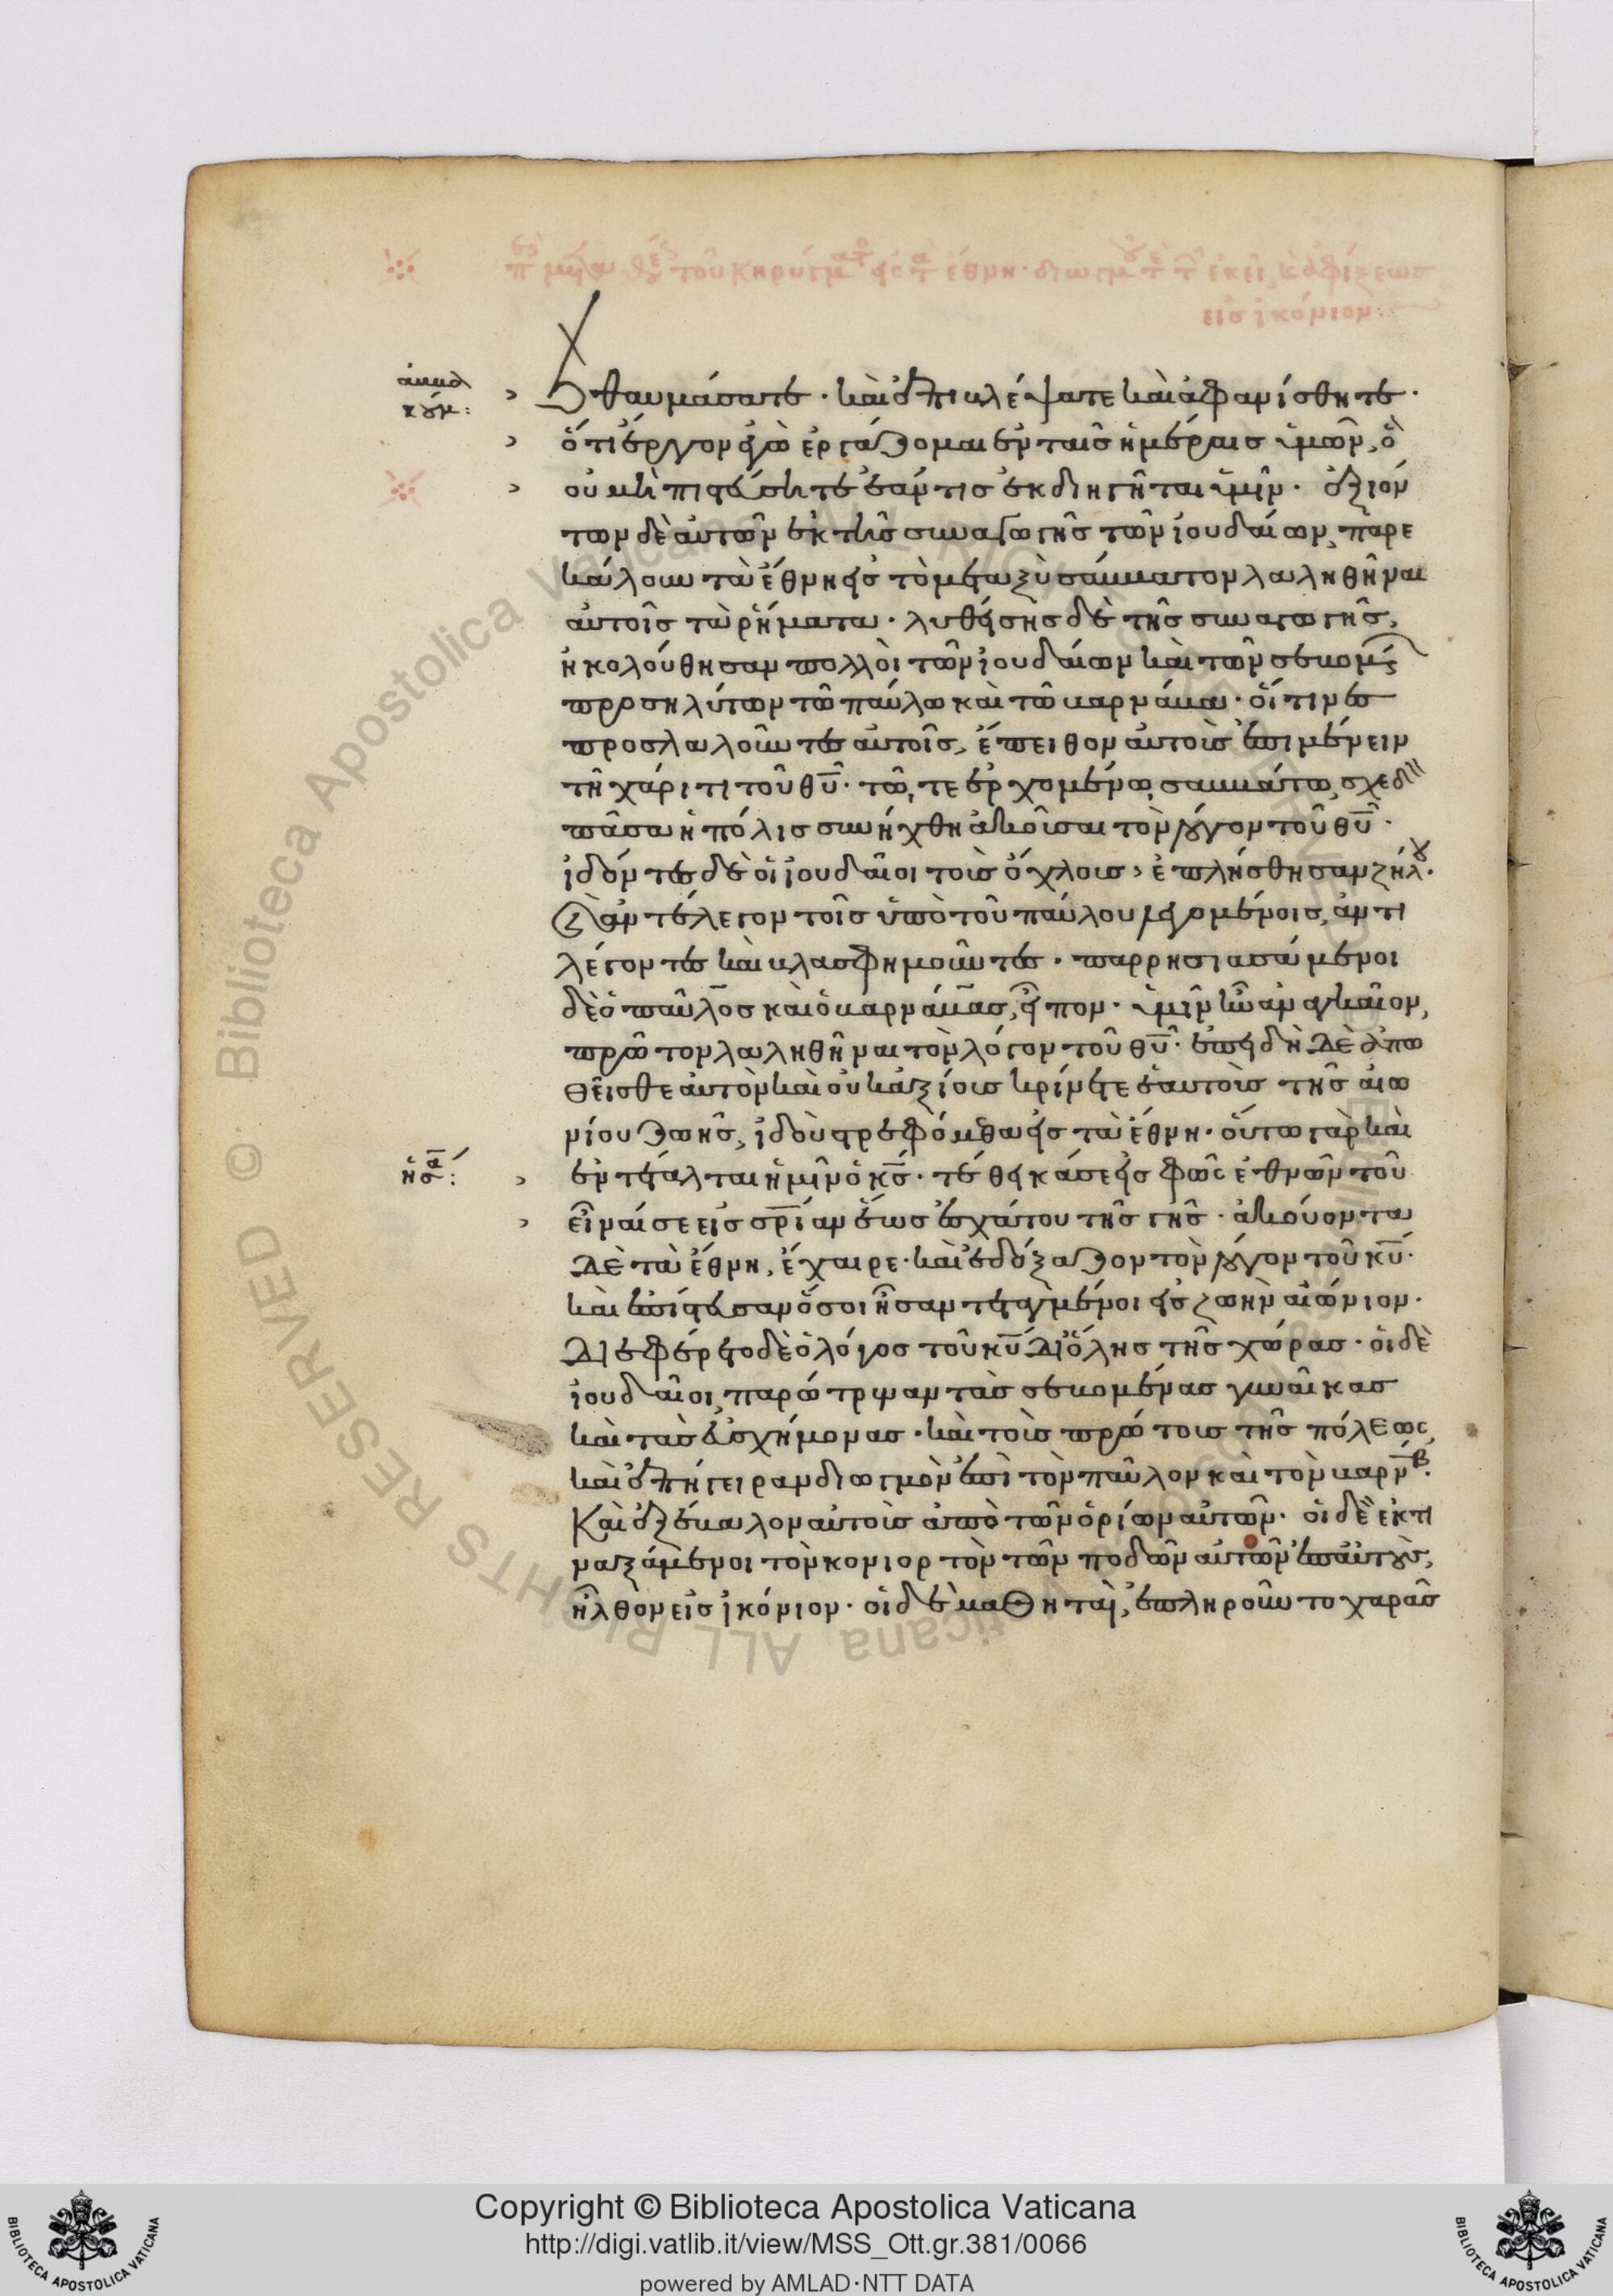 τοῦ κηρύγμ εἰς τ ἔθνη· διωγμ τ τ ἐκεῖ ἀφίξεως
εἰς ἰκόνιον:
ἀμβα
κούμ:
θαυμάσατε· καὶ ἐπιβλέψατε καὶ ἀφανίσθητε·
ὅτι ἔργον ἐγὼ ἐργάζομαι ἐν ταῖς ἡμέραις ὑμῶν, ὃ
οὐ μὴ πιστεύσητε ἐάν τις ἐκδιηγῆται ὑμῖν· ἐξιόν
των δὲ αὐτῶν ἐκ τῆς συναγωγῆς τῶν ἰουδαίων, παρε
κάλουν τὰ ἔθνη εἰς τὸ μεταξὺ σάββατον λαληθῆναι
αὐτοῖς τὰ ῥήματα· λυθείσης δὲ τῆς συναγωγῆς,
ἠκολούθησαν πολλοὶ τῶν ἰουδαίων καὶ τῶν σεβομ
προσηλύτων τῶ παύλω καὶ τῶ βαρνάβα· οἵτινες
προσλαλοῦντες αὐτοῖς, ἔπειθον αὐτοὺς ἐπιμένειν
τῆ χάριτι τοῦ θῡ· τῶ, τε ἐρχομένω, σαββάτω, σχεδ
πᾶσα ἡ πόλις συνήχθη ἀκοῦσαι τὸν λόγον τοῦ θῡ·
ἰδόντες δὲ οἱ ἰουδαῖοι τοὺς ὄχλους, ἐπλήσθησαν ζήλου·
καὶ ἀντέλεγον τοῖς ὑπὸ τοῦ παύλου λεγομένοις, ἀντι
λέγοντες καὶ βλασφημοῦντες· παρρησιασάμενοι
δὲ ὁ παῦλος καὶ ὁ βαρνάβας, εἶπον· ὑμῖν ἦν ἀναγκαῖον,
πρῶτον λαληθῆναι τὸν λόγον τοῦ θῡ· ἐπειδὴ δὲ ἀπω
θεῖσθε αὐτὸν καὶ οὐκ ἀξίους κρίνετε ἑαυτοὺς τῆς αἰω
νίου ζωῆς, ἰδοὺ στρεφόμεθα εἰς τὰ ἔθνη· οὕτω γὰρ καὶ
ἡσα:
ἐντέταλται ἡμῖν ὁ κ̄ς· τέθεικά σε εἰς φῶς ἐθνῶν τοῦ
εἶναί σε εἰς σρ̄ίαν ἕως ἐσχάτου τῆς γῆς· ἀκούοντα
δὲ τὰ ἔθνη, ἔχαιρε· καὶ ἐδόξαζον τὸν λόγον τοῦ κῡ·
καὶ ἐπίστευσαν ὅσοι ἦσαν τεταγμένοι εἰς ζωὴν αἰώνιον·
διεφέρετο δὲ ὁ λόγος τοῦ κῡ δι' ὅλης τῆς χώρας· οἱ δὲ
ἰουδαῖοι, παρώτρυναν τὰς σεβομένας γυναῖκας
καὶ τὰς εὐσχήμονας· καὶ τοὺς πρώτους τῆς πόλεως,
καὶ ἐπήγειραν διωγμὸν ἐπὶ τὸν παῦλον καὶ τὸν βαρνβ·
Καὶ ἐξέβαλον αὐτοὺς ἀπὸ τῶν ὁρίων αὐτῶν· οἱ δὲ ἐκτι
ναξάμενοι τὸν κονιορτὸν τῶν ποδῶν αὐτῶν ἐπ' αὐτοὺς,
ἦλθον εἰς ἰκόνιον· οἱ δὲ μαθηταὶ, ἐπληροῦντο χαρᾶς
© Biblioteca Apostolica Vaticana ALL RIGHTS RESERVED
Copyright © Biblioteca Apostolica Vaticana
http://digi.vatlib.it/view/MSS_Ott.gr.381/0066
powered by AMLAD·NTT DATA
BIBLIOTECA APOSTOLICA VATICANA
BIBLIOTECA APOSTOLICA VATICANA